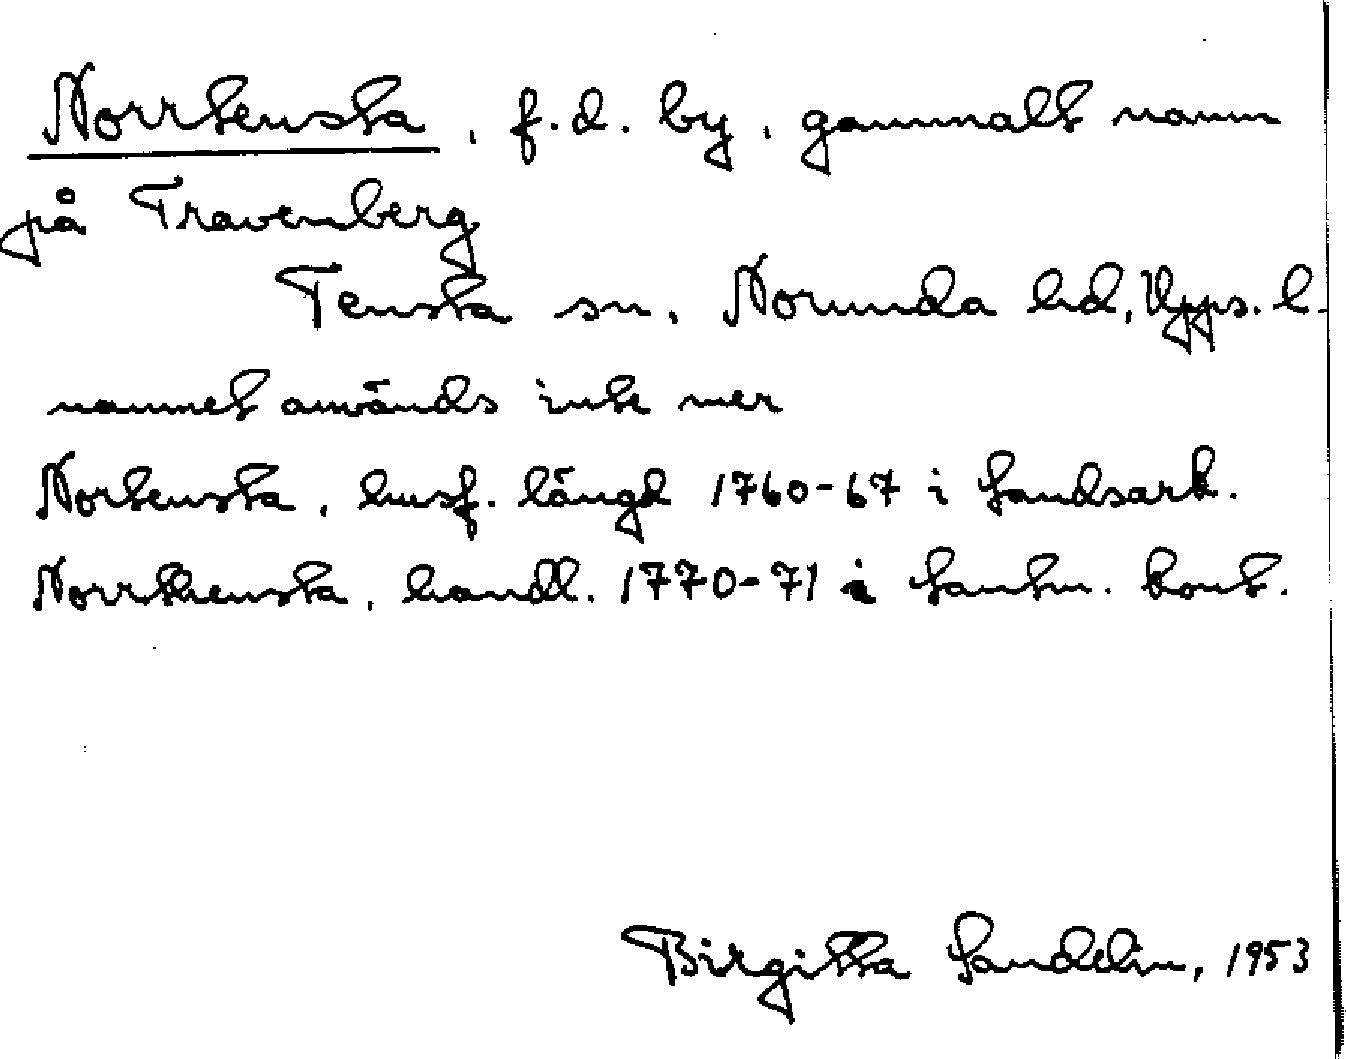 Norrtensta, f.d. by, gammalt namn
på Travenberg
Tensta sn, Norunda hd, Upps. l.
namnet används inte mer
Nortensta, husf. längd 1760-67 i Landsark.
Norrthensta, handl. 1770-71 i Lantm. kont.
Birgitta Sandelin, 1953